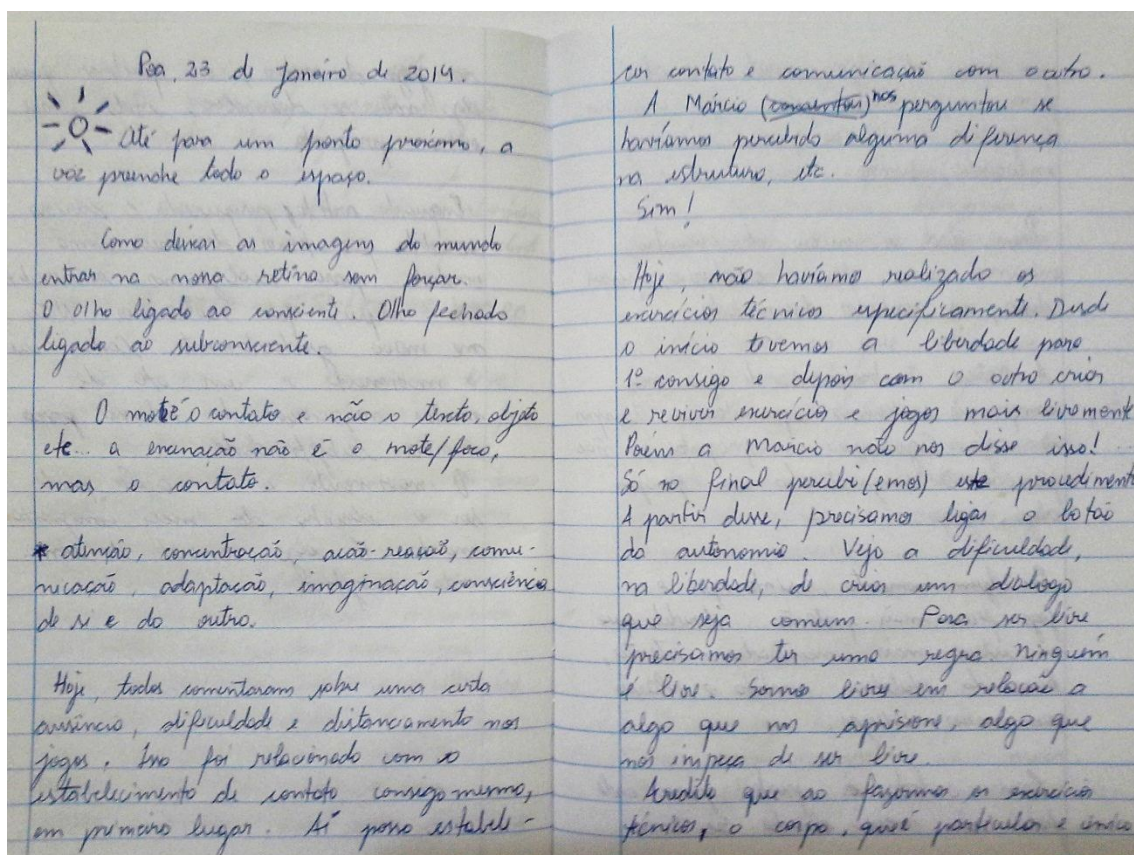 Poa, 23 de Janeiro de 2014.
Até para um ponto próximo, a
voz preenche todo o espaço.
Como deixar as imagens do mundo
entrar na nossa retina sem forçar.
O olho ligado ao consciente. Olho fechado
ligado ao subconsciente.
O mote é o contato e não o texto, objeto
etc... a encenação não é o mote/foco,
mas o contato.
* atenção, concentração, ação-reação, comu-
nicação, adaptação, imaginação, consciência
de si e do outro.
Hoje, todos comentaram sobre uma certa
ausência, dificuldade e distanciamento nos
jogos. Isso foi relacionado com o
estabelecimento de contato consigo mesmo,
em primeiro lugar. Aí posso estabele-
cer contato e comunicação com o outro.
A Márcia (comentou) nos perguntou se
havíamos percebido alguma diferença
na estrutura, etc.
Sim!
Hoje, não havíamos realizado os
exercícios técnicos especificamente. Desde
o início tivemos a liberdade para
1º consigo e depois com o outro criar
e reviver exercícios e jogos mais livremente
Porém a Marcia não nos disse isso!
Só no final percebi (emos) este procedimento
A partir desse, precisamos ligar o botão
da autonomia. Vejo a dificuldade,
na liberdade, de criar um dialogo
que seja comum. Para ser livre
precisamos ter uma regra ninguém
é livre. Somos livres em relação a
algo que nos aprisione, algo que
nos impeça de ser livre.
Acredito que ao fazermos os exercícios
técnicos, o corpo, que é particular e único